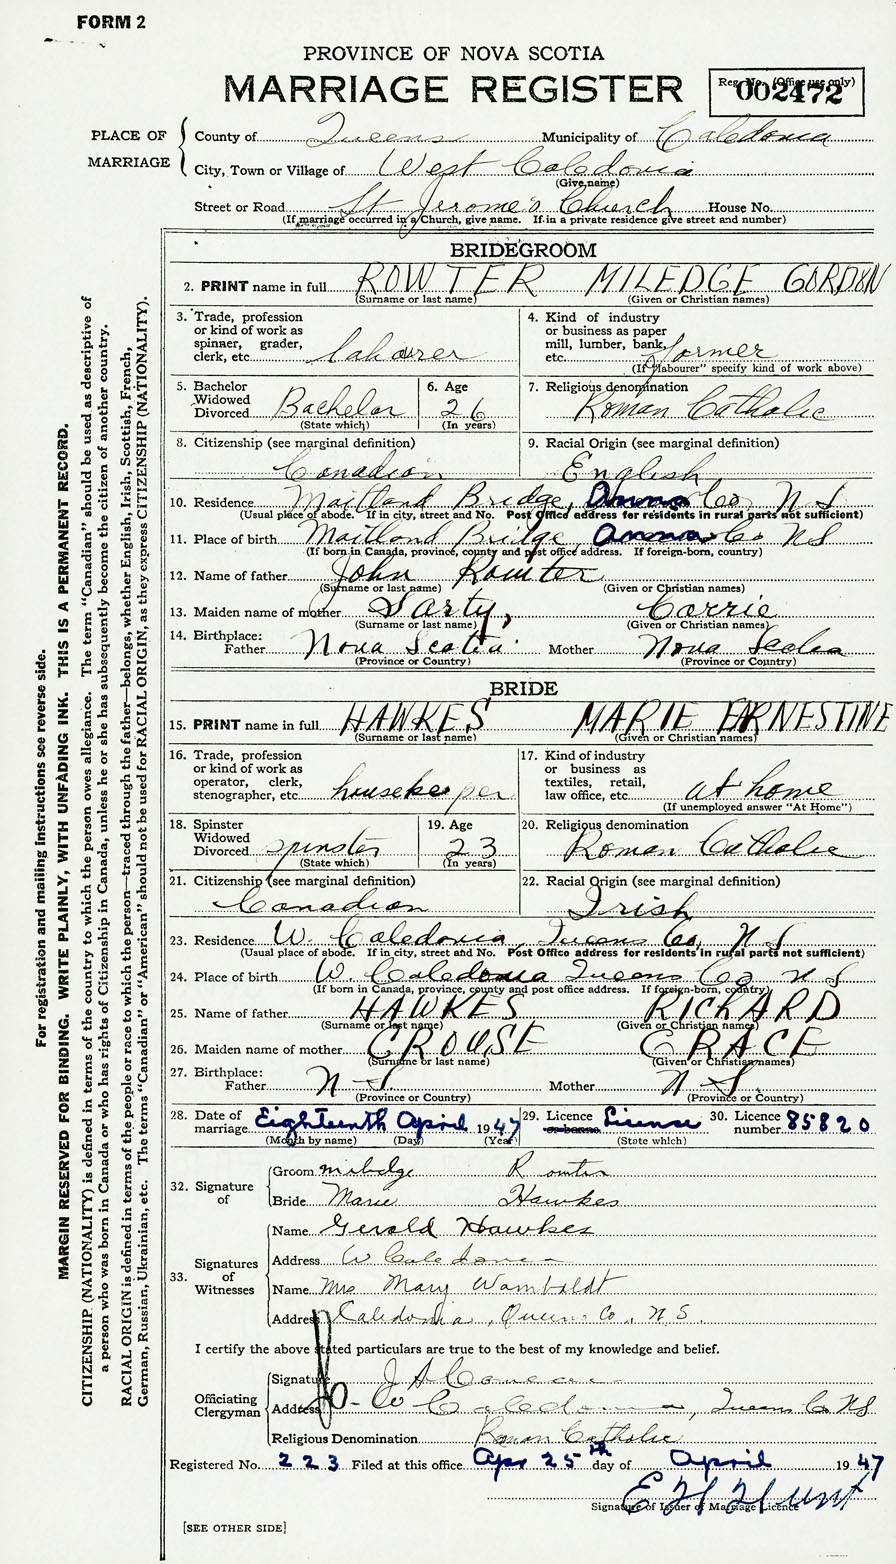 FORM 2
PROVINCE OF NOVA SCOTIA
MARRIAGE REGISTER
Reg. No. (Office use only)
002472
PLACE OF MARRIAGE
County of Queens Municipality of Caledonia
City, Town or Village of West Caledonia
(Give name)
Street or Road St Jerome's Church House No.
(If marriage occurred in a Church, give name. If in a private residence give street and number)
BRIDEGROOM
2. PRINT name in full ROWTER MILEDGE GORDON
(Surname or last name) (Given or Christian names)
3. Trade, profession or kind of work as spinner, grader, clerk, etc. labourer
4. Kind of industry or business as paper mill, lumber, bank, etc. farmer
(If "labourer" specify kind of work above)
5. Bachelor Widowed Divorced Bachelor
(State which)
6. Age 26
(In years)
7. Religious denomination Roman Catholic
8. Citizenship (see marginal definition) Canadian
9. Racial Origin (see marginal definition) English
10. Residence Maitland Bridge, Anna Co, N S
(Usual place of abode. If in city, street and No. Post Office address for residents in rural parts not sufficient)
11. Place of birth Maitland Bridge, Anna Co NS
(If born in Canada, province, county and post office address. If foreign-born, country)
12. Name of father John Rowter
(Surname or last name) (Given or Christian names)
13. Maiden name of mother Sarty, Carrie
(Surname or last name) (Given or Christian names)
14. Birthplace: Father Nova Scotia Mother Nova Scotia
(Province or Country) (Province or Country)
BRIDE
15. PRINT name in full HAWKES MARIE EARNESTINE
(Surname or last name) (Given or Christian names)
16. Trade, profession or kind of work as operator, clerk, stenographer, etc. housekeeper
17. Kind of industry or business as textiles, retail, law office, etc. at home
(If unemployed answer "At Home")
18. Spinster Widowed Divorced spinster
(State which)
19. Age 23
(In years)
20. Religious denomination Roman Catholic
21. Citizenship (see marginal definition) Canadian
22. Racial Origin (see marginal definition) Irish
23. Residence W. Caledonia, Queens Co, N S
(Usual place of abode. If in city, street and No. Post Office address for residents in rural parts not sufficient)
24. Place of birth W. Caledonia Queens Co N S
(If born in Canada, province, county and post office address. If foreign-born, country)
25. Name of father HAWKES RICHARD
(Surname or last name) (Given or Christian names)
26. Maiden name of mother CROUSE GRACE
(Surname or last name) (Given or Christian names)
27. Birthplace: Father N S Mother N S
(Province or Country) (Province or Country)
28. Date of marriage Eighteenth April 1947
(Month by name) (Day) (Year)
29. Licence or banns License
(State which)
30. Licence number 85820
32. Signature of
Groom Miledge Rowter
Bride Marie Hawkes
33. Signatures of Witnesses
Name Gerald Hawkes
Address W Caledonia
Name Mrs Mary Wamboldt
Address Caledonia, Queens Co., N.S.
I certify the above stated particulars are true to the best of my knowledge and belief.
Officiating Clergyman
Signature J A
Address W Caledonia, Queens Co NS
Religious Denomination Roman Catholic
Registered No. 223 Filed at this office Apr 25th day of April 1947
E H Hunt
Signature of Issuer of Marriage Licence
[SEE OTHER SIDE]
For registration and mailing instructions see reverse side.
MARGIN RESERVED FOR BINDING. WRITE PLAINLY, WITH UNFADING INK. THIS IS A PERMANENT RECORD.
CITIZENSHIP (NATIONALITY) is defined in terms of the country to which the person owes allegiance. The term "Canadian" should be used as descriptive of
a person who was born in Canada or who has rights of Citizenship in Canada, unless he or she has subsequently become the citizen of another country.
RACIAL ORIGIN is defined in terms of the people or race to which the person—traced through the father—belongs, whether English, Irish, Scottish, French,
German, Russian, Ukrainian, etc. The terms "Canadian" or "American" should not be used for RACIAL ORIGIN, as they express CITIZENSHIP (NATIONALITY).